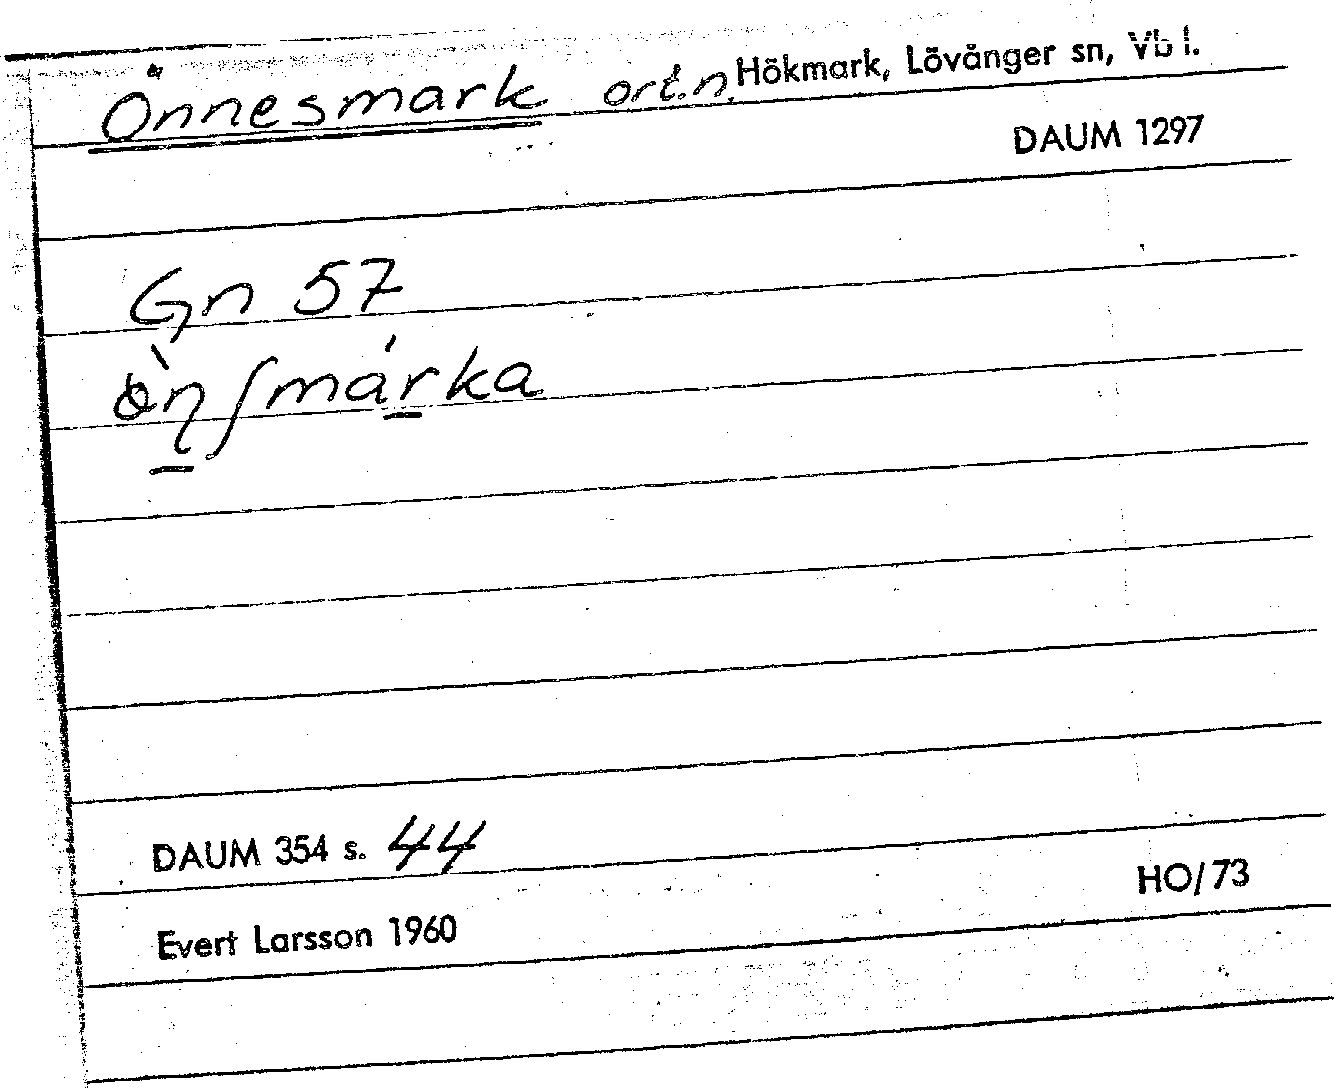 Önnesmark ort.n. Hökmark, Lövånger sn, Vb l.
DAUM 1297
Gn 57
ö̀n̠ʃmárka
DAUM 354 s. 44
HO/73
Evert Larsson 1960